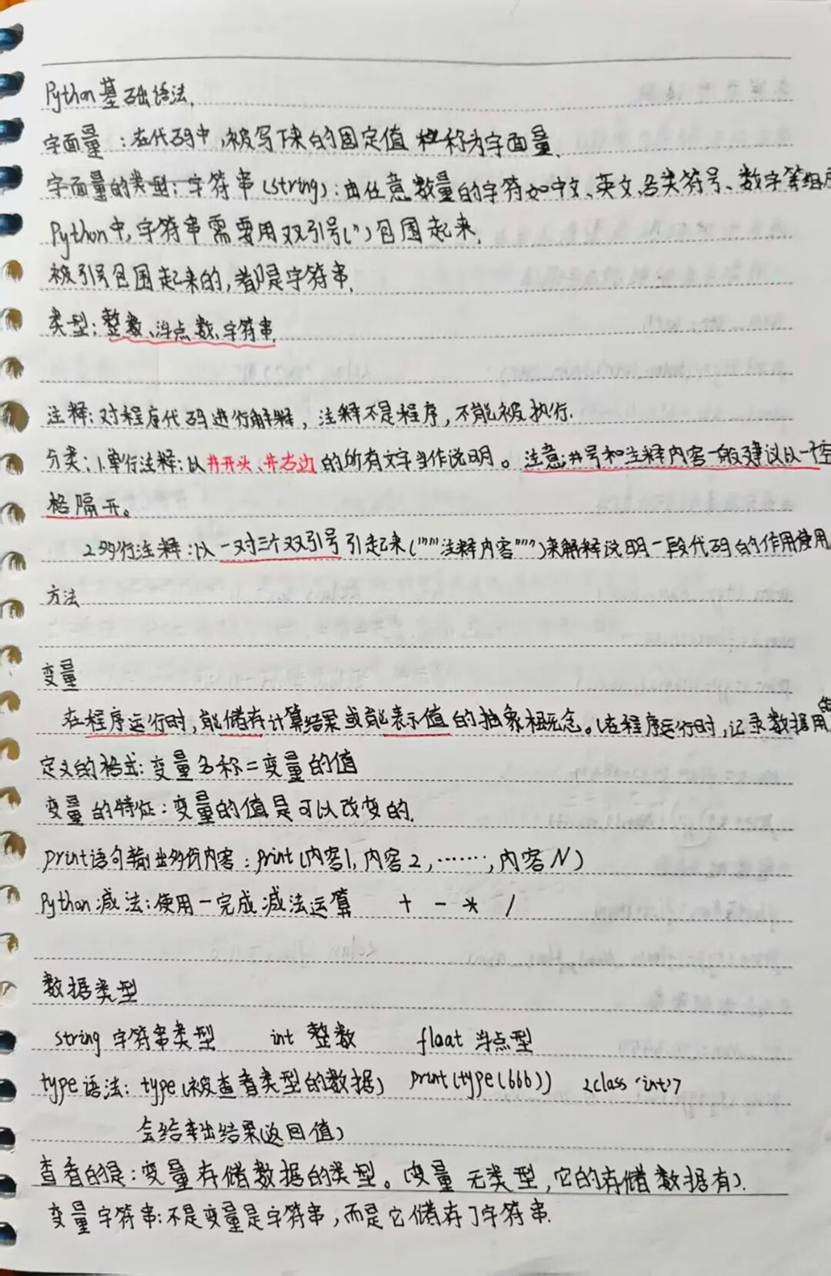 Python基础语法.
字面量：在代码中,被写下来的固定值 称为字面量.
字面量的类型：字符串(string)：由任意数量的字符如中文、英文、各类符号、数字等组成
Python中,字符串需要用双引号(")包围起来.
被引号包围起来的,都是字符串.
类型：整数、浮点数、字符串.
注释：对程序代码进行解释，注释不是程序，不能被执行.
分类：1.单行注释：以#开头、#右边的所有文字当作说明。注意:#号和注释内容一般建议以一个空
格隔开。
2.多行注释：以一对三个双引号引起来("""注释内容""")来解释说明一段代码的作用使用
方法
变量
在程序运行时,能储存计算结果或能表示值的抽象概念。(在程序运行时,记录数据用的
定义的格式：变量名称=变量的值
变量的特征：变量的值是可以改变的.
print语句输出多份内容：print(内容1,内容2,……,内容N)
Python减法：使用-完成减法运算 + - * /
数据类型
string 字符串类型 int 整数 float 浮点型
type语法：type(被查看类型的数据) print(type(666)) <class 'int'>
会给出结果(返回值)
查看的是：变量存储数据的类型。(变量无类型,它的存储数据有).
变量字符串:不是变量是字符串,而是它储存了字符串.